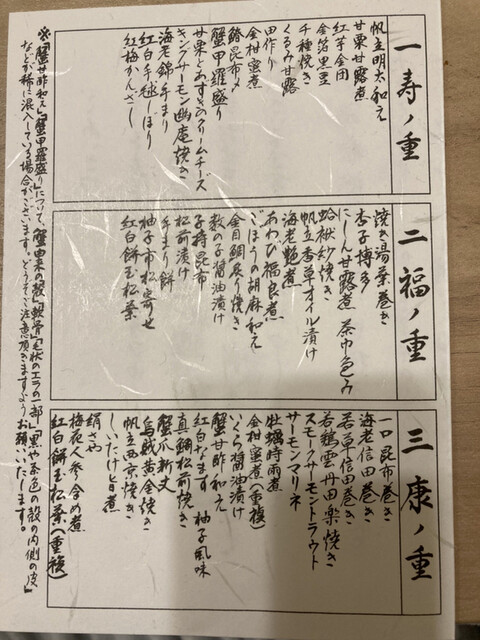 一 寿ノ重
帆立明太和え
甘栗甘露煮
紅芋金団
金箔黒豆
千種焼き
くるみ甘露
田作り
金柑蜜煮
鰊昆布〆
蟹甲羅盛り
甘栗とあずきのクリームチーズ
キングサーモン幽庵焼き
海老錦手まり
紅白手毬しぼり
紅梅かんざし
二 福ノ重
焼き湯葉巻き
杏子博多
にしん甘露煮 茶巾色み
蛤松妙焼き
帆立香草オイル漬け
海老艶煮
あわび福良煮
ごぼうの胡麻和え
金目鯛炙り焼き
数の子醤油漬け
子持昆布
松前漬け
手まり餅
柚子市松寄せ
紅白餅玉松葉
三 康ノ重
一口昆布巻き
海老信田巻き
若草信田巻き
若鶏雲丹田楽焼き
スモークサーモントラウト
サーモンマリネ
牡蠣時雨煮
金柑蜜煮(重複)
いくら醤油漬け
蟹甘酢和え
紅白なます 柚子風味
真鯛松前焼き
蟹爪新丈
烏賊黄金焼き
帆立西京焼き
しいたけ旨煮
絹さや
梅花人参含め煮
紅白餅玉松葉(重複)
※「蟹甘酢和え」「蟹甲羅盛り」について、蟹由来の「殻」「軟骨」「毛状のエラの一部」「黒や茶色の殻の内側の皮」
などが稀に混入している場合がございます。どうぞご注意頂きますようお願いいたします。